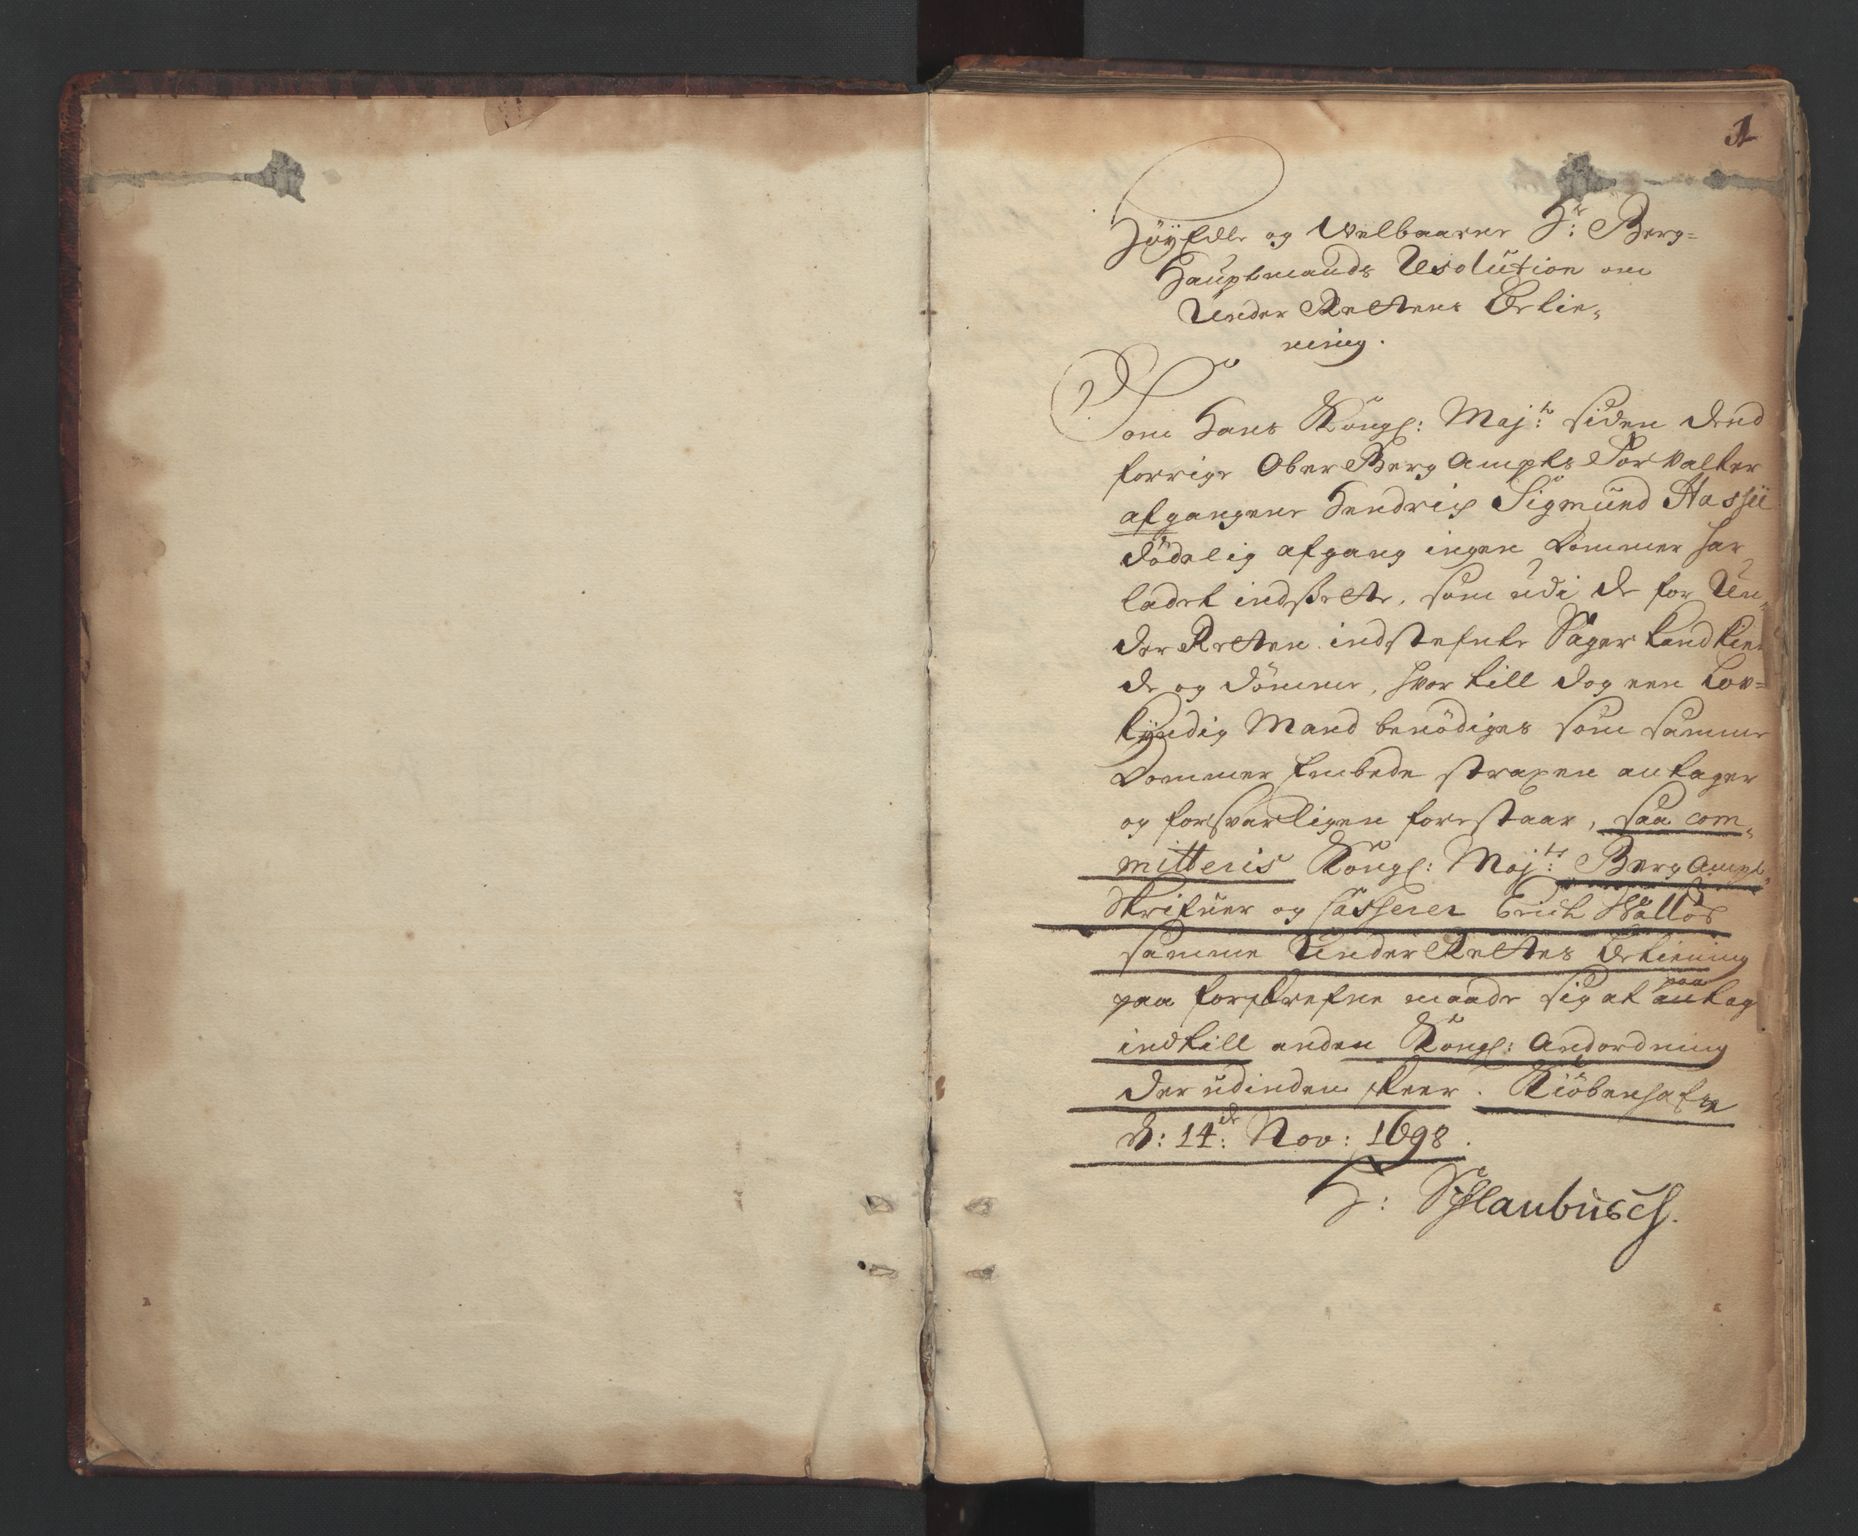 1
Høyædle og Velbaarne Hr: Berg=
Hauptmands Resolution om
Under Rettens Betie„
ning.
Som Hans Kongl: Majts: siden dend
forrige Ober Berg Ampts Forvalter
afgangene Hendrich Sigmund Hassii
dödelig afgang ingen Dommer har
ladet indsette, som udi de for Un„
der Retten indstefnte Sager kand kien
de og dömme, hvor till dog een Lov=
kyndig Mand benödiges som samme
Dommer Embede straxen antager
og forsvarligen forestaar, saa com„
mitteris Kongl: Majts: Berg Ampt„
Skrifuer og Casserer Erich
samme Under Rettes Betiening
paa forskrefne maade sig at paatag
indtill anden Kongl: Andordning
der udinden skeer. Kiöbenhafn
d: 14de: Nov: 1698.
H: Schlanbusch.